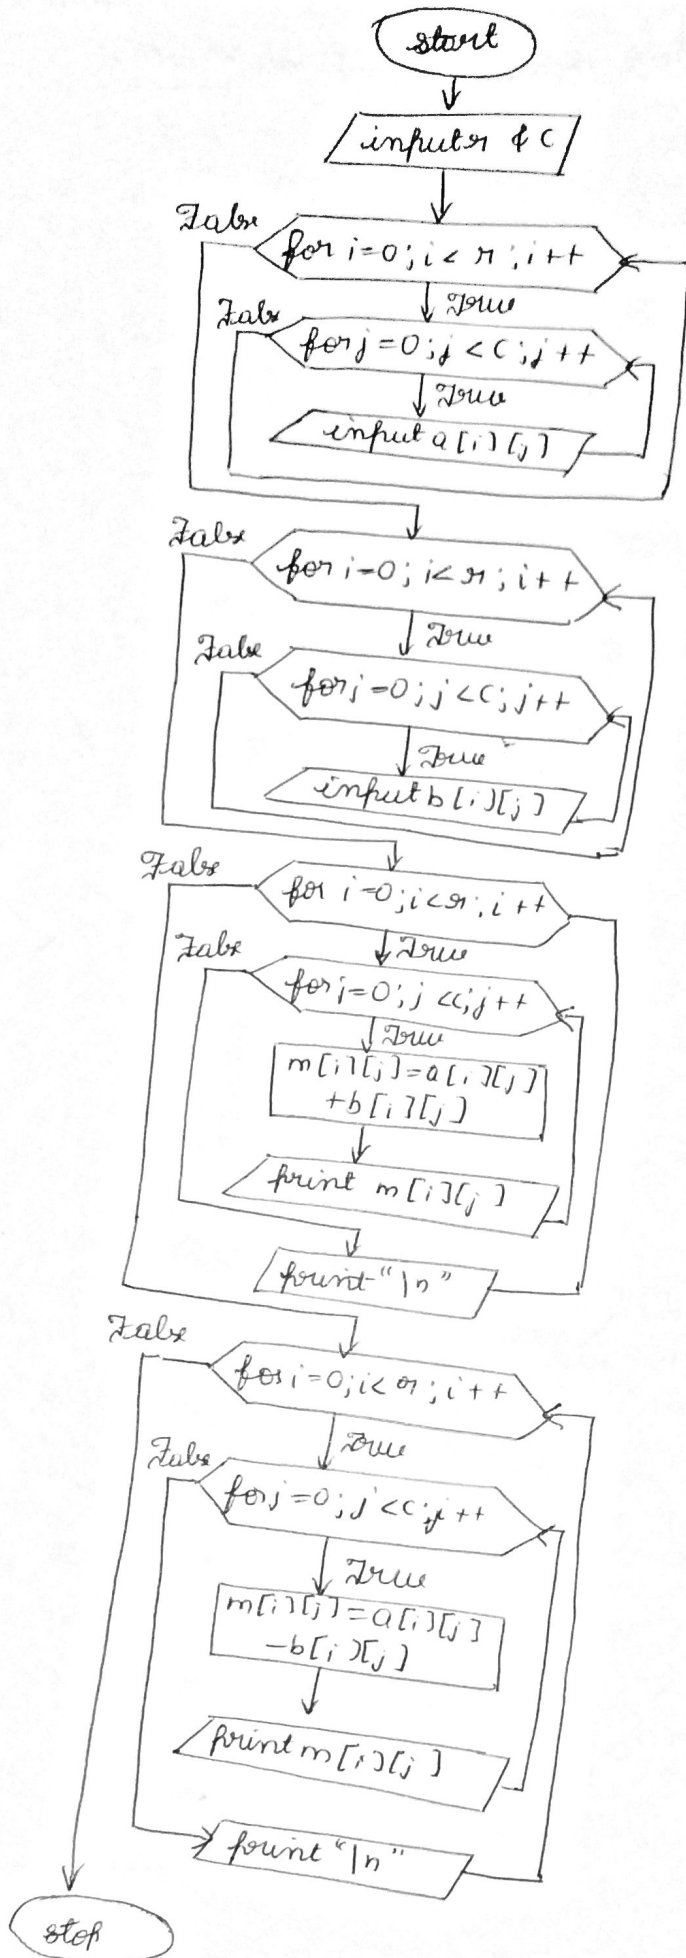 start
input r & c
False
for i=0; i< r; i++
True
False
for j=0; j<c; j++
True
input a[i][j]
False
for i=0; i<r; i++
True
False
for j=0; j<c; j++
True
input b[i][j]
False
for i=0; i<r; i++
True
False
for j=0; j<c; j++
True
m[i][j]=a[i][j]
+b[i][j]
print m[i][j]
print "\n"
False
for i=0; i<r; i++
True
False
for j=0; j<c; j++
True
m[i][j]=a[i][j]
-b[i][j]
print m[i][j]
print "\n"
stop